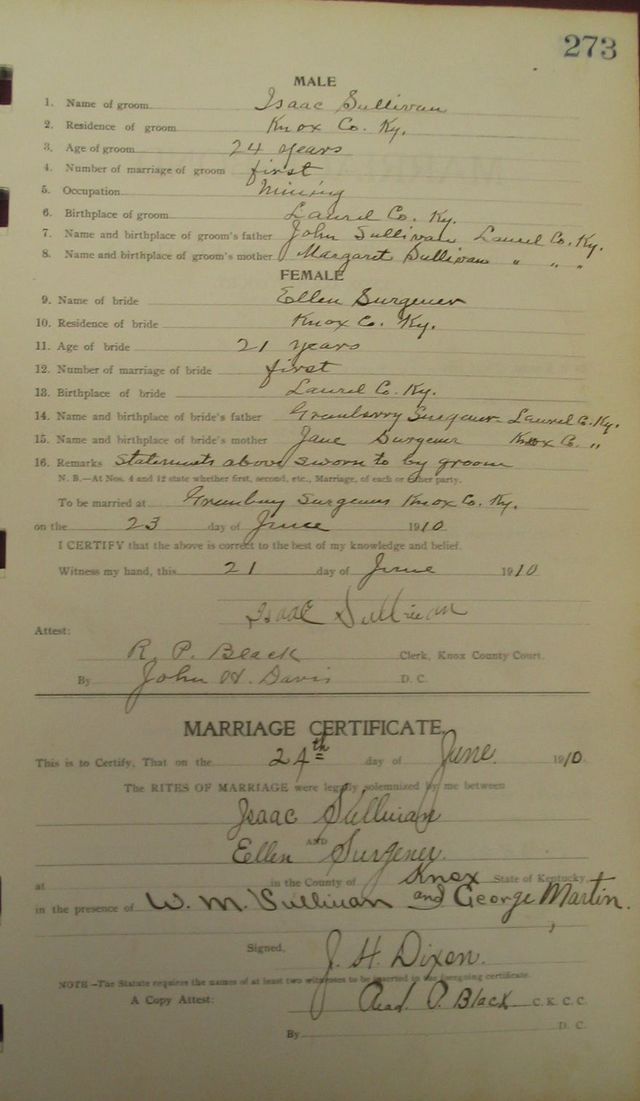 273
MALE
1. Name of groom Isaac Sullivan
2. Residence of groom Knox Co. Ky.
3. Age of groom 24 years
4. Number of marriage of groom first
5. Occupation Mining
6. Birthplace of groom Laurel Co. Ky.
7. Name and birthplace of groom's father John Sullivan Laurel Co. Ky.
8. Name and birthplace of groom's mother Margaret Sullivan " " "
FEMALE
9. Name of bride Ellen Surgener
10. Residence of bride Knox Co. Ky.
11. Age of bride 21 years
12. Number of marriage of bride first
13. Birthplace of bride Laurel Co. Ky.
14. Name and birthplace of bride's father Granberry Surgener Laurel Co. Ky.
15. Name and birthplace of bride's mother Jane Surgener Knox Co. "
16. Remarks Statements above sworn to by groom
N. B.—At Nos. 4 and 12 state whether first, second, etc., Marriage, of each or either party.
To be married at Surgeners Knox Co. Ky.
on the 23 day of June 1910
I CERTIFY that the above is correct to the best of my knowledge and belief.
Witness my hand, this 21 day of June 1910
Isaac Sullivan
Attest:
R. P. Black Clerk, Knox County Court.
By John H. Davis D. C.
MARRIAGE CERTIFICATE.
This is to Certify, That on the 24th day of June. 1910.
The RITES OF MARRIAGE were legally solemnized by me between
Isaac Sullivan
AND
Ellen Surgener
at in the County of Knox State of Kentucky
in the presence of W. M. Sullivan and George Martin.
Signed, J. H. Dixon.
NOTE—The Statute requires the names of at least two witnesses to be inserted in the foregoing certificate.
A Copy Attest: Read P. Black C. K. C. C.
By D. C.